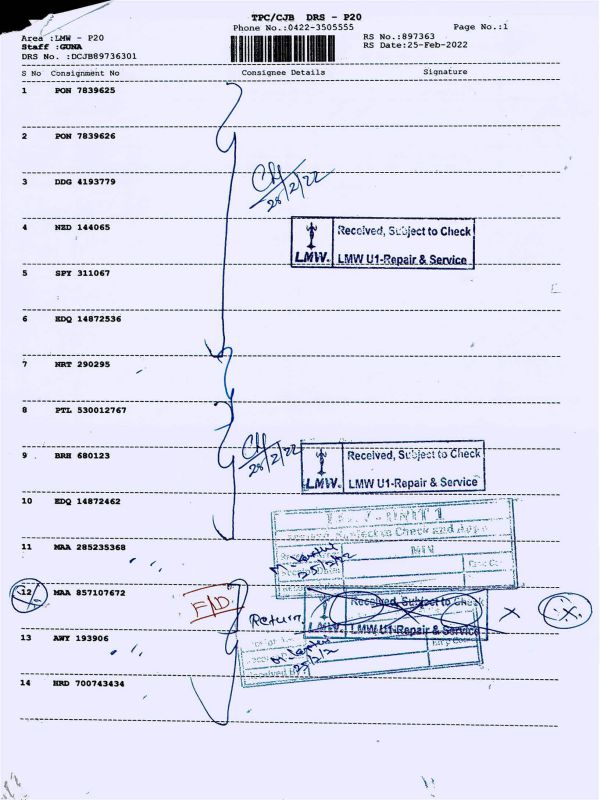 TPC/CJB DRS - P20
Phone No.:0422-3505555
Page No.:1
Area :LMW - P20
RS No.:897363
Staff :GUNA
RS Date:25-Feb-2022
DRS No. :DCJB89736301
S No Consignment No Consignee Details Signature
1 PON 7839625
2 PON 7839626
3 DDG 4193779
25/2/22
4 NZD 144065
Received, Subject to Check
LMW. LMW U1-Repair & Service
5 SPY 311067
6 EDQ 14872536
7 NRT 290295
8 PTL 530012767
25/2/22
9 BRH 680123
Received, Subject to Check
LMW. LMW U1-Repair & Service
10 EDQ 14872462
UNIT 1
Subject to Check and
11 MAA 285235368
MIV
12 MAA 857107672
F/D.
Return
Received, Subject to Check
LMW. LMW U1-Repair & Service
13 AWY 193906
14 HRD 700743434